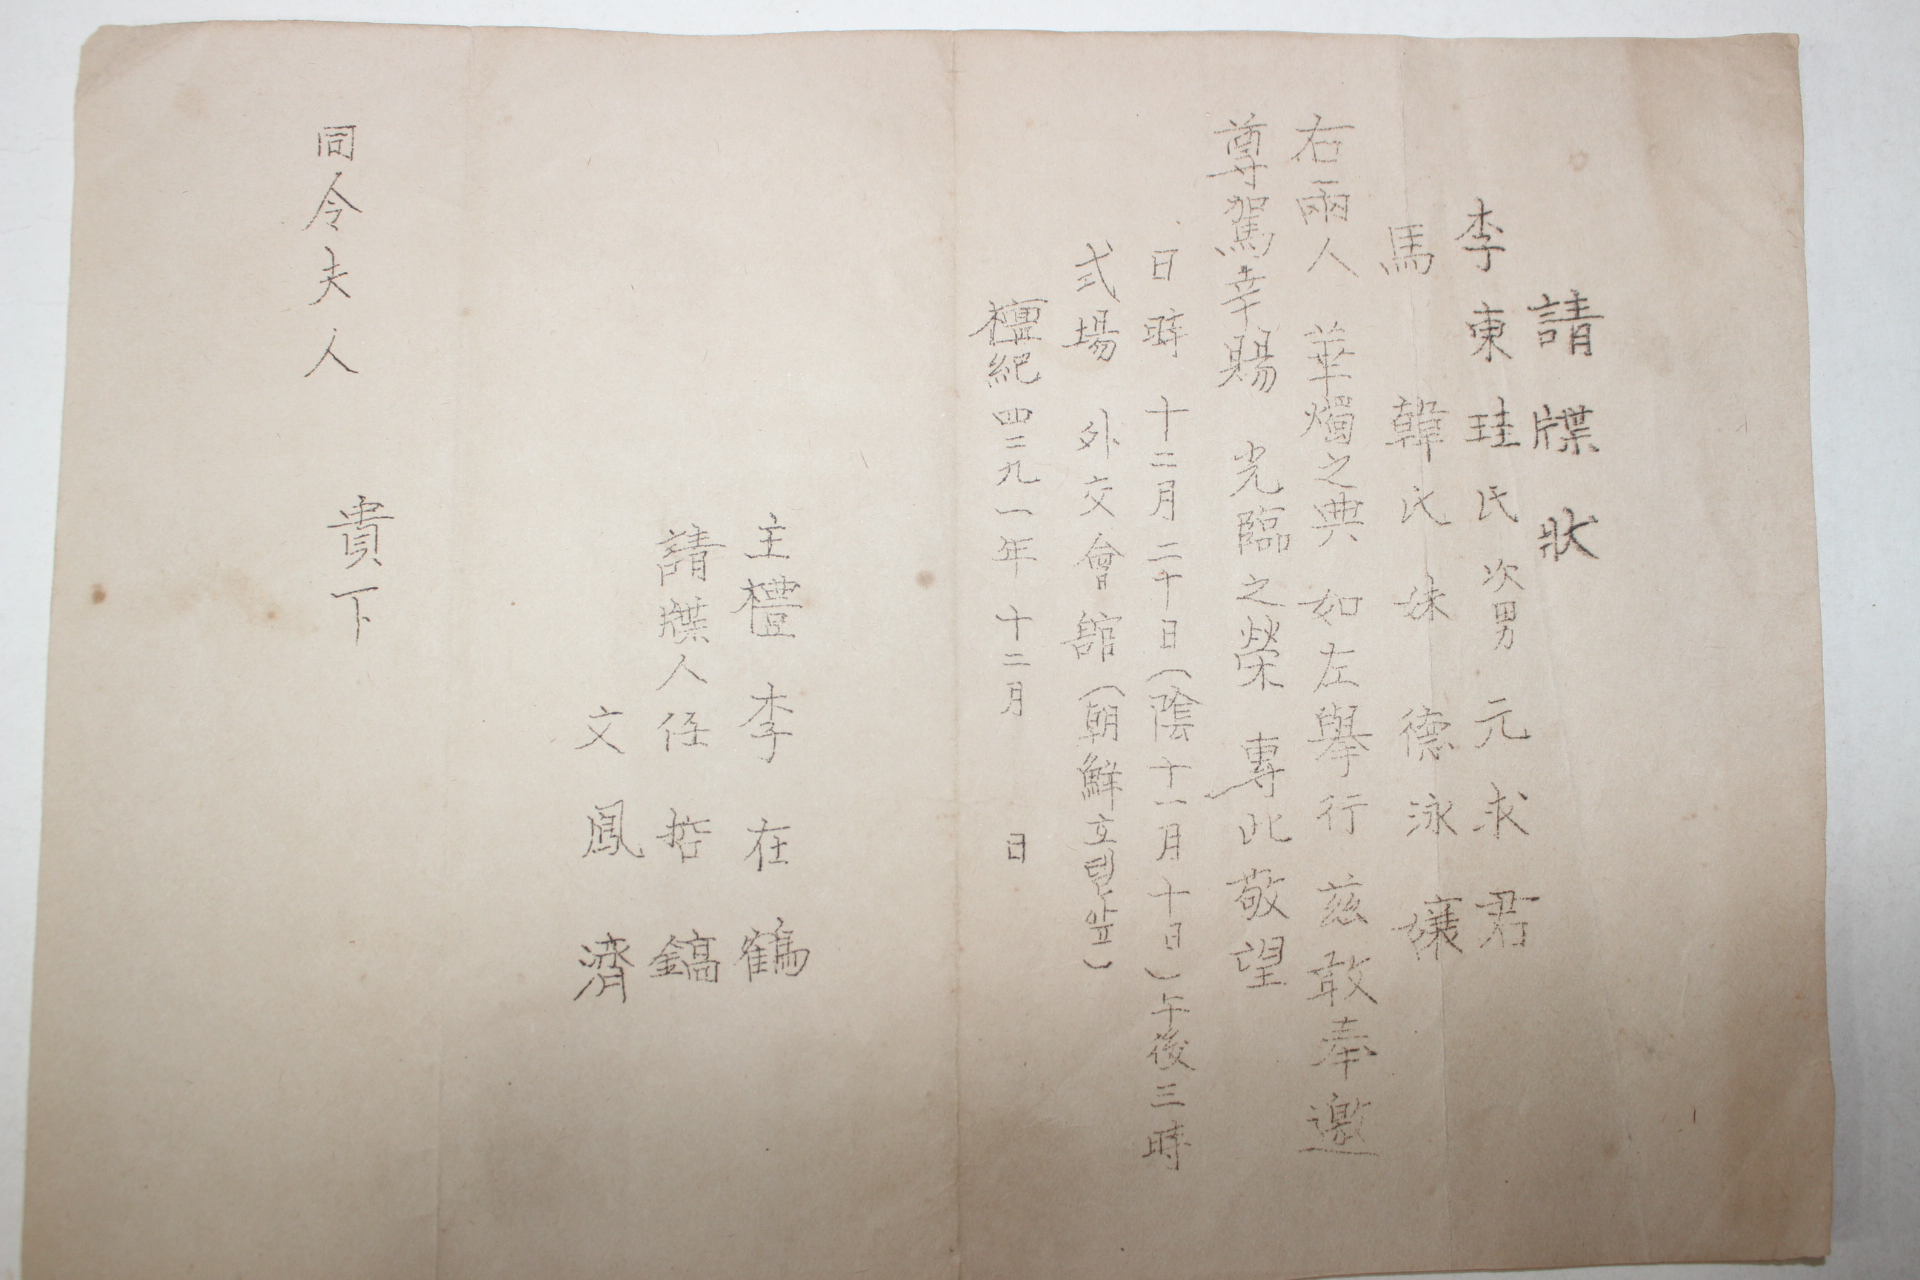 請牒狀
李東珪氏 次男 元求君
馬韓氏 妹 德泳孃
右兩人 華燭之典 如左擧行 茲敢奉邀
尊駕幸賜 光臨之榮 專此敬望
日時 十二月二十日(陰十一月十日)午後三時
式場 外交會舘(朝鮮호텔앞)
檀紀四二九一年十二月 日
主禮 李在鶴
請牒人 任哲鎬
文鳳濟
貴下
同令夫人